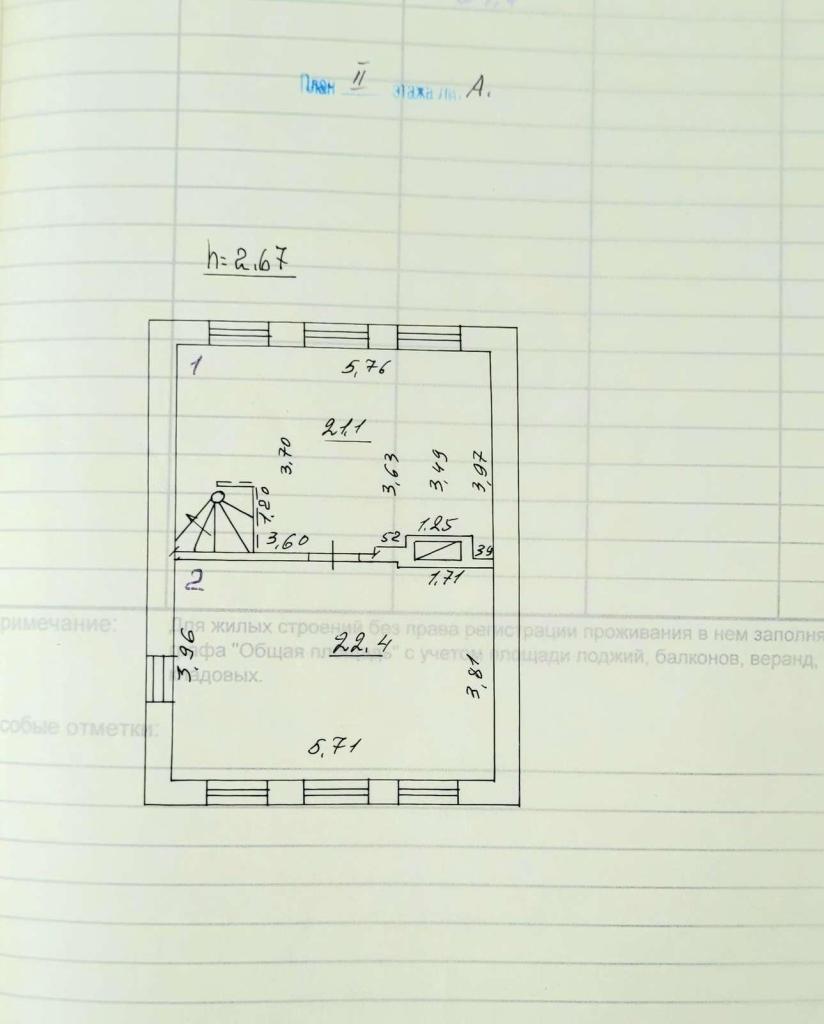 План II этажа лит. А.
h=2,67
1
5,76
21,1
3,70
3,63
3,49
3,97
1,20
3,60
52
1,25
39
2
1,71
римечание:
Для жилых строений без права регистрации проживания в нем заполня
графа "Общая площадь" с учетом площади лоджий, балконов, веранд,
кладовых.
22,4
3,96
3,81
собые отметки:
5,71